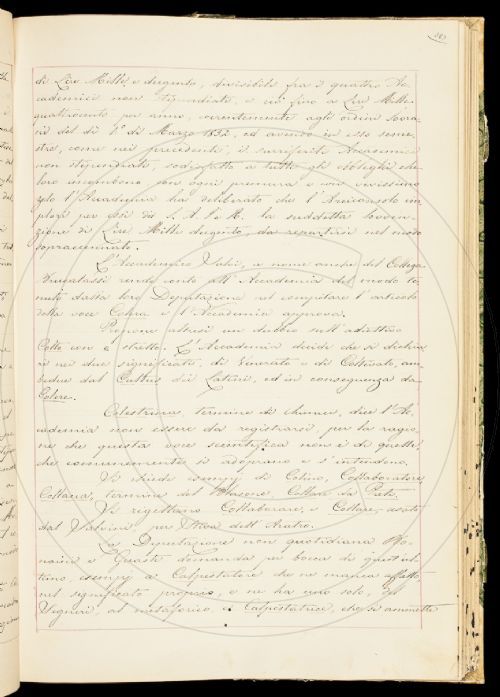 di Lire Mille e dugento, divisibili fra i quattro Ac-
cademici non stipendiati, e ciò fino a Lire Mille
quattrocento per anno, coerentemente agli ordini Sovra-
ni del dì 1° di Marzo 1832, ed avendo in esso seme-
stre, come nei precedenti, i surriferiti Accademici
non stipendiati, sodisfatto a tutti gli obblighi che
loro incombono con ogni premura e con vivissimo
zelo l'Accademia ha deliberato che l'Arciconsolo im-
plori per essi da S. A. I. e R. la suddetta sovven-
zione di Lire Mille dugento, da repartirsi nel modo
sopraccennato.
L'Accademico a nome anche del Collega
rende conto all'Accademia del modo te-
nuto dalla loro Deputazione nel compilare l'articolo
della voce e l'Accademia approva.
Propone altresì un dubbio sull'adiettivo
Colto con o stretto. L'Accademia decide che si dichia-
ri nei due significati, di Venerato e di Coltivato, am-
bedue dal Cultus dei Latini, ed in conseguenza da
Colere.
termine di dice l'Ac-
cademia non essere da registrarsi, per la ragio-
ne che questa voce scientifica non è di quelle,
che comunemente si adoprano e s'intendono.
Si chiede esempj di Collaboratore,
termine del Blasone, da Preti.
Si rigettano Collaborare, e
dal Salvini per dell'Aratro.
La Deputazione non quotidiana
e Guasti domanda per bocca di quest'ul-
timo, esempj a Calpestatore che ne manca affatto
nel significato proprio, e ne ha uno solo, del
Segneri, al metaforico, a Calpestatrice, che si ammette